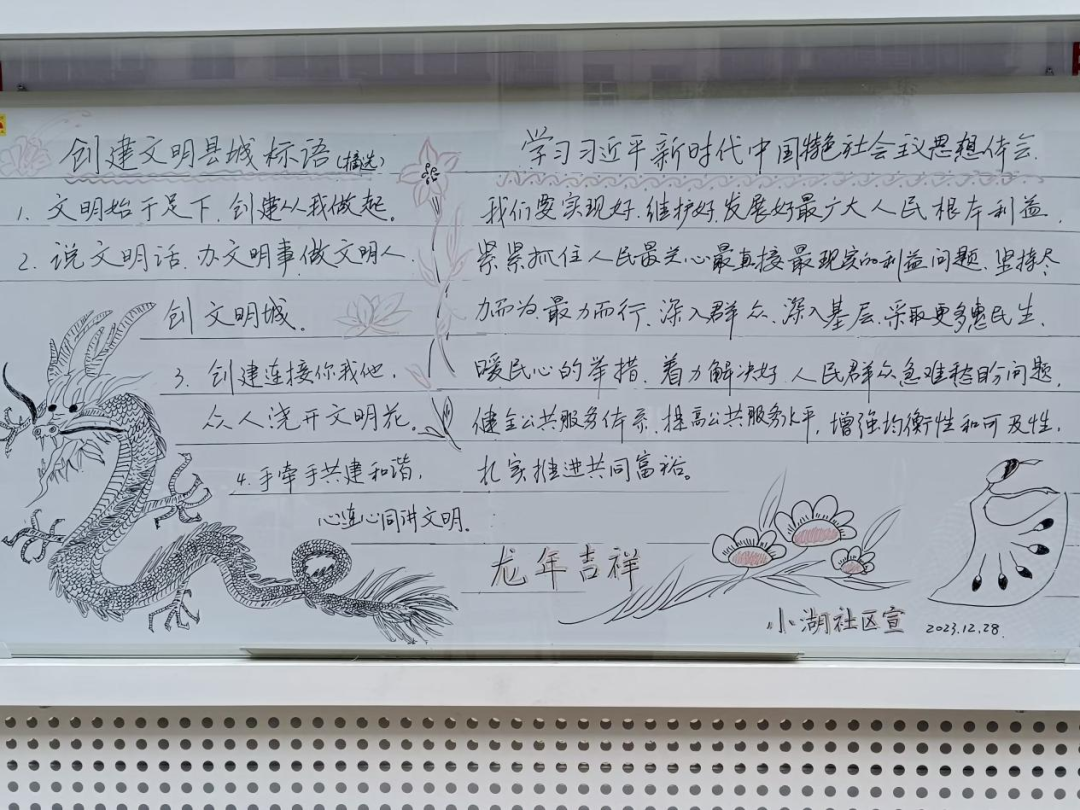 创建文明县城标语(摘选)
1. 文明始于足下,创建从我做起。
2. 说文明话,办文明事,做文明人,
创文明城。
3. 创建连接你我他,
众人浇开文明花。
4. 手牵手共建和谐,
心连心同讲文明。
学习习近平新时代中国特色社会主义思想体会
我们要实现好、维护好、发展好最广大人民根本利益,
紧紧抓住人民最关心最直接最现实的利益问题,坚持尽
力而为、量力而行,深入群众、深入基层,采取更多惠民生、
暖民心的举措,着力解决好人民群众急难愁盼问题,
健全公共服务体系,提高公共服务水平,增强均衡性和可及性,
扎实推进共同富裕。
龙年吉祥
小湖社区宣 2023.12.28.